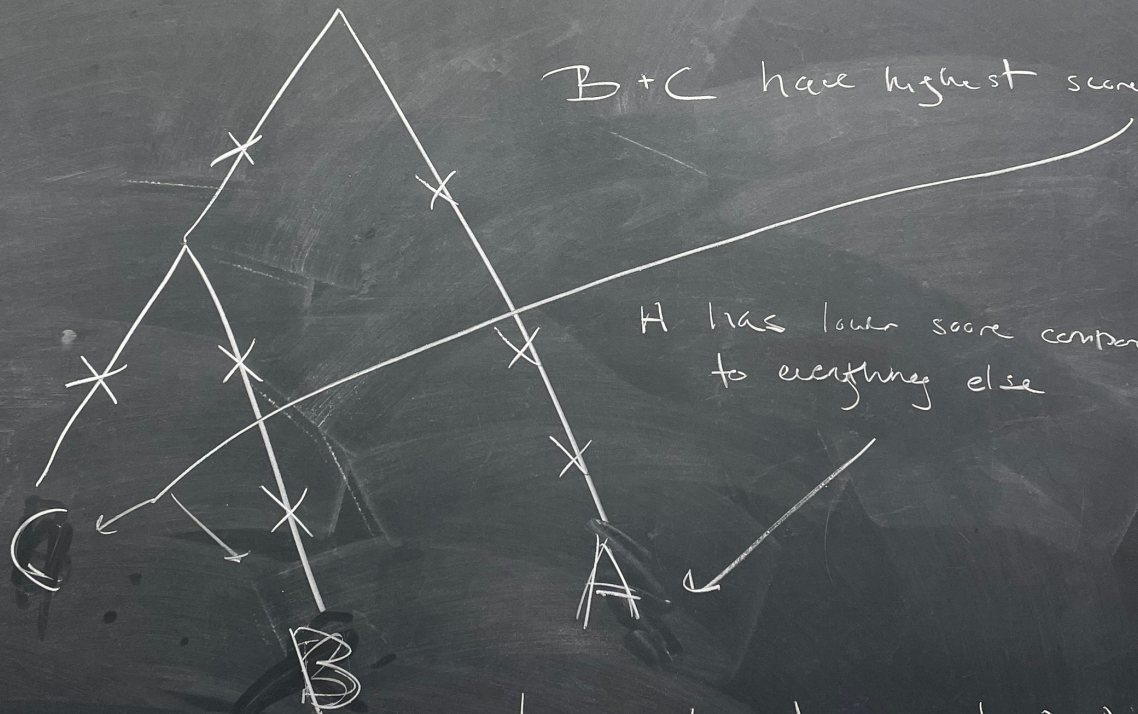 B + C have highest score
A has lower score compar
to everything else
C
A
B